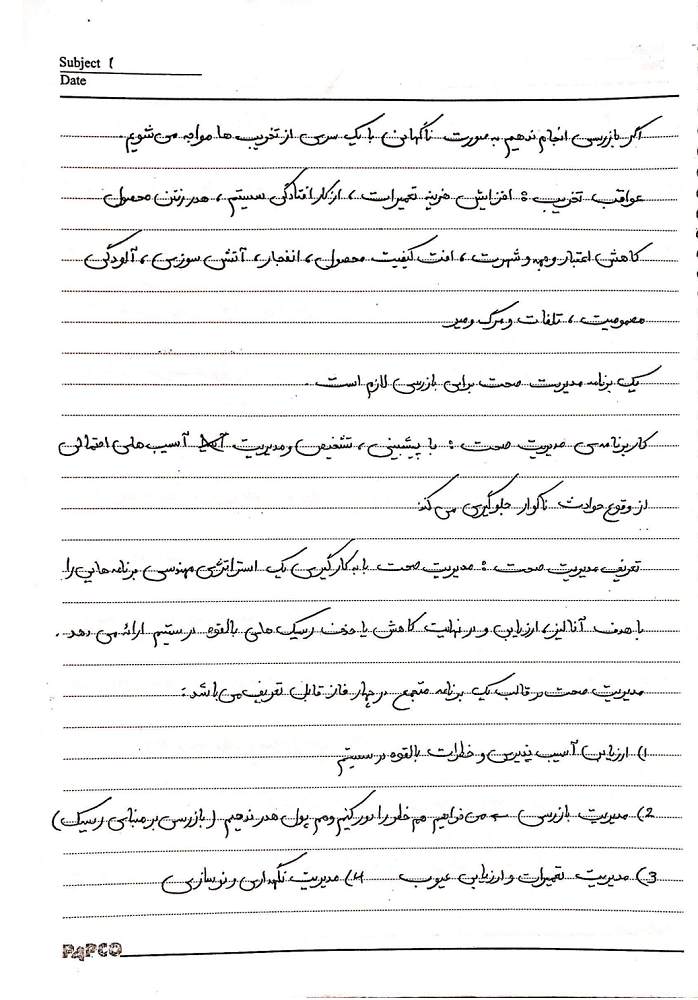 Subject 1
Date
اگر بازرسی انجام ندهیم به صورت ناگهانی با یک سری از تخریب ها مواجه می شویم.
عواقب تخریب : افزایش هزینه تعمیرات ، از کار افتادگی سیستم ، هدر رفتن محصول
کاهش اعتبار وجهه و شهرت ، افت کیفیت محصول ، انفجار ، آتش سوزی ، آلودگی
مصمومیت ، تلفات و مرگ و میر
یک برنامه مدیریت صحت برای بازرسی لازم است.
کار برنامه ی مدیریت صحت : با پیشبینی ، تشخیص و مدیریت آسیب های احتمالی
از وقوع حوادث ناگوار جلوگیری می کند.
تعریف مدیریت صحت : مدیریت صحت با به کار گیری یک استراتژی مهندسی برنامه هایی را
با هدف آنالیز ، ارزیابی و در نهایت کاهش یا حذف ریسک های بالقوه در سیستم ارائه می دهد.
مدیریت صحت در قالب یک برنامه متجمع در چهار فاز قابل تعریف می باشد :
1) ارزیابی آسیب پذیری و خطرات بالقوه در سیستم
2) مدیریت بازرسی ← می خواهیم هم خطر را دور کنیم و هم پول هدر ندهیم (بازرسی بر مبنای ریسک)
3) مدیریت تعمیرات و ارزیابی عیوب 4) مدیریت نگهداری و نوسازی
PAPCO